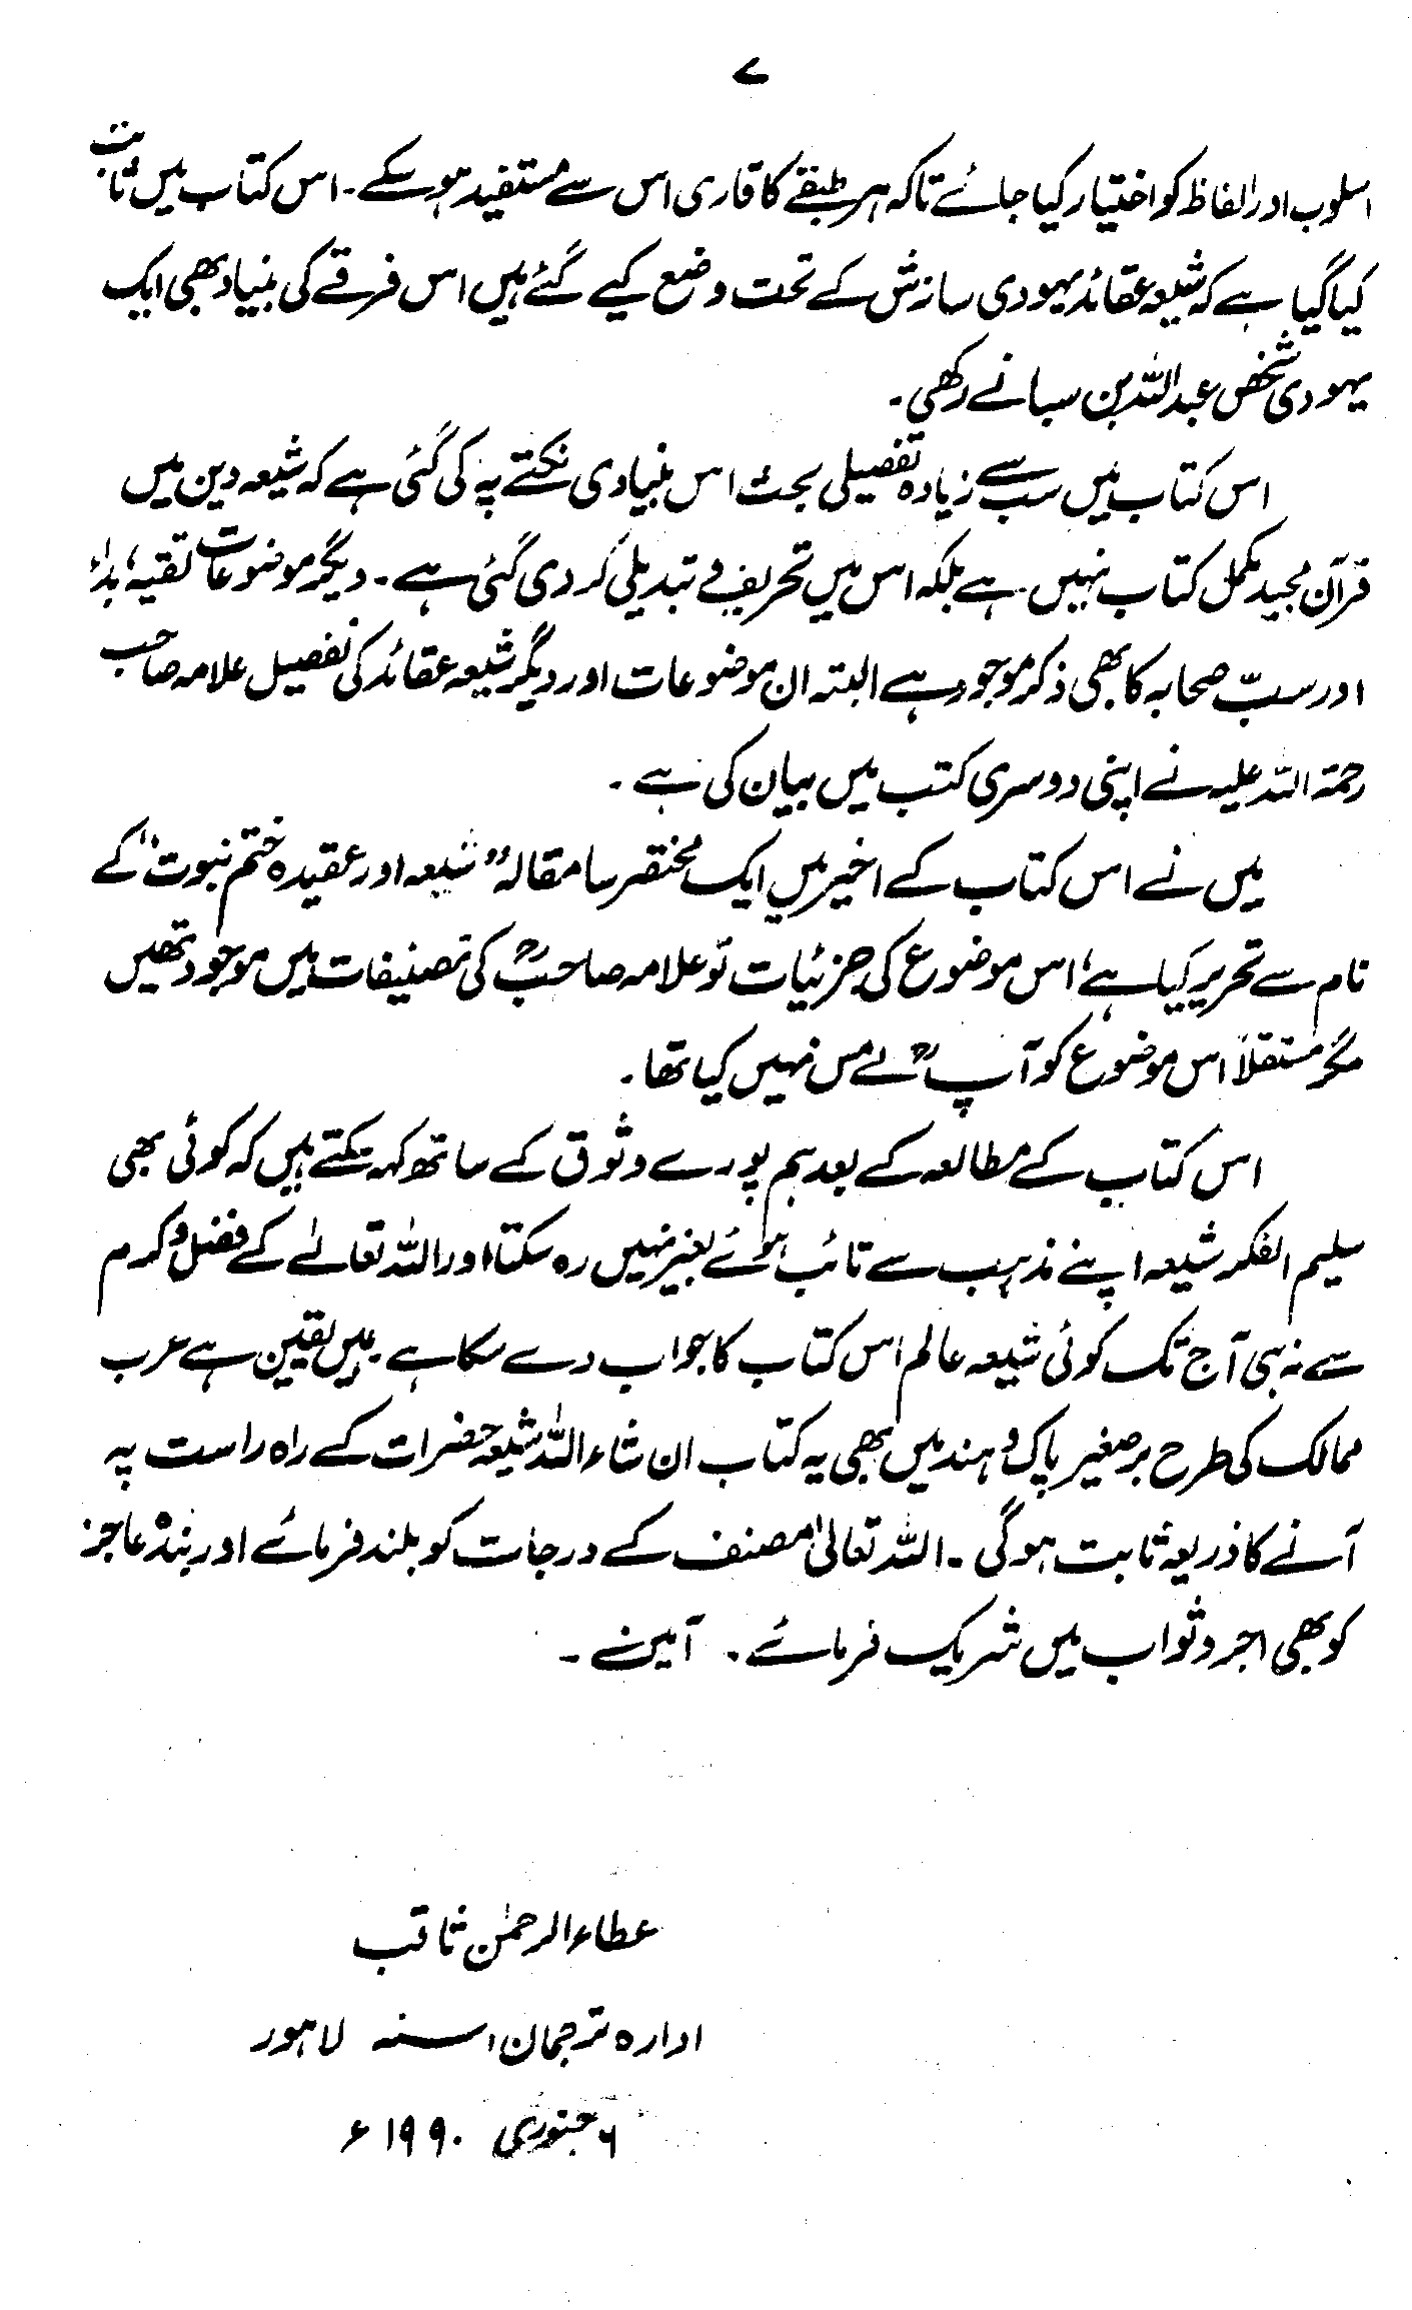 ۷
اسلوب اور الفاظ کو اختیار کیا جائے تاکہ ہر طبقے کا قاری اس سے مستفید ہو سکے۔ اس کتاب میں ثابت
کیا گیا ہے کہ شیعہ عقائد یہودی سازش کے تحت وضع کیے گئے ہیں اس فرقے کی بنیاد بھی ایک
یہودی شخص عبداللہ بن سبا نے رکھی۔
اس کتاب میں سب سے زیادہ تفصیلی بحث اس بنیادی نکتے پہ کی گئی ہے کہ شیعہ دین میں
قرآن مجید مکمل کتاب نہیں ہے بلکہ اس میں تحریف و تبدیلی کر دی گئی ہے۔ دیگر موضوعات تقیہ، بداء
اور سبّ صحابہ کا بھی ذکر موجود ہے البتہ ان موضوعات اور دیگر شیعہ عقائد کی تفصیل علامہ صاحب
رحمۃ اللہ علیہ نے اپنی دوسری کتب میں بیان کی ہے۔
میں نے اس کتاب کے اخیر میں ایک مختصر سا مقالہ "شیعہ اور عقیدہ ختم نبوت" کے
نام سے تحریر کیا ہے، اس موضوع کی جزئیات تو علامہ صاحبؒ کی تصنیفات میں موجود تھیں
مگر مستقلاً اس موضوع کو آپؒ نے مس نہیں کیا تھا۔
اس کتاب کے مطالعہ کے بعد ہم پورے وثوق کے ساتھ کہہ سکتے ہیں کہ کوئی بھی
سلیم الفکر شیعہ اپنے مذہب سے تائب ہوئے بغیر نہیں رہ سکتا اور اللہ تعالےٰ کے فضل و کرم
سے نہ ہی آج تک کوئی شیعہ عالم اس کتاب کا جواب دے سکا ہے ہمیں یقین ہے عرب
ممالک کی طرح برصغیر پاک و ہند میں بھی یہ کتاب ان شاء اللہ شیعہ حضرات کے راہ راست پہ
آنے کا ذریعہ ثابت ہوگی۔ اللہ تعالیٰ مصنف کے درجات کو بلند فرمائے اور بندہ عاجز
کو بھی اجر و ثواب میں شریک فرمائے۔ آمین۔
عطاء الرحمٰن ثاقب
ادارہ ترجمان السنہ لاہور
۶ جنوری ۱۹۹۰ء